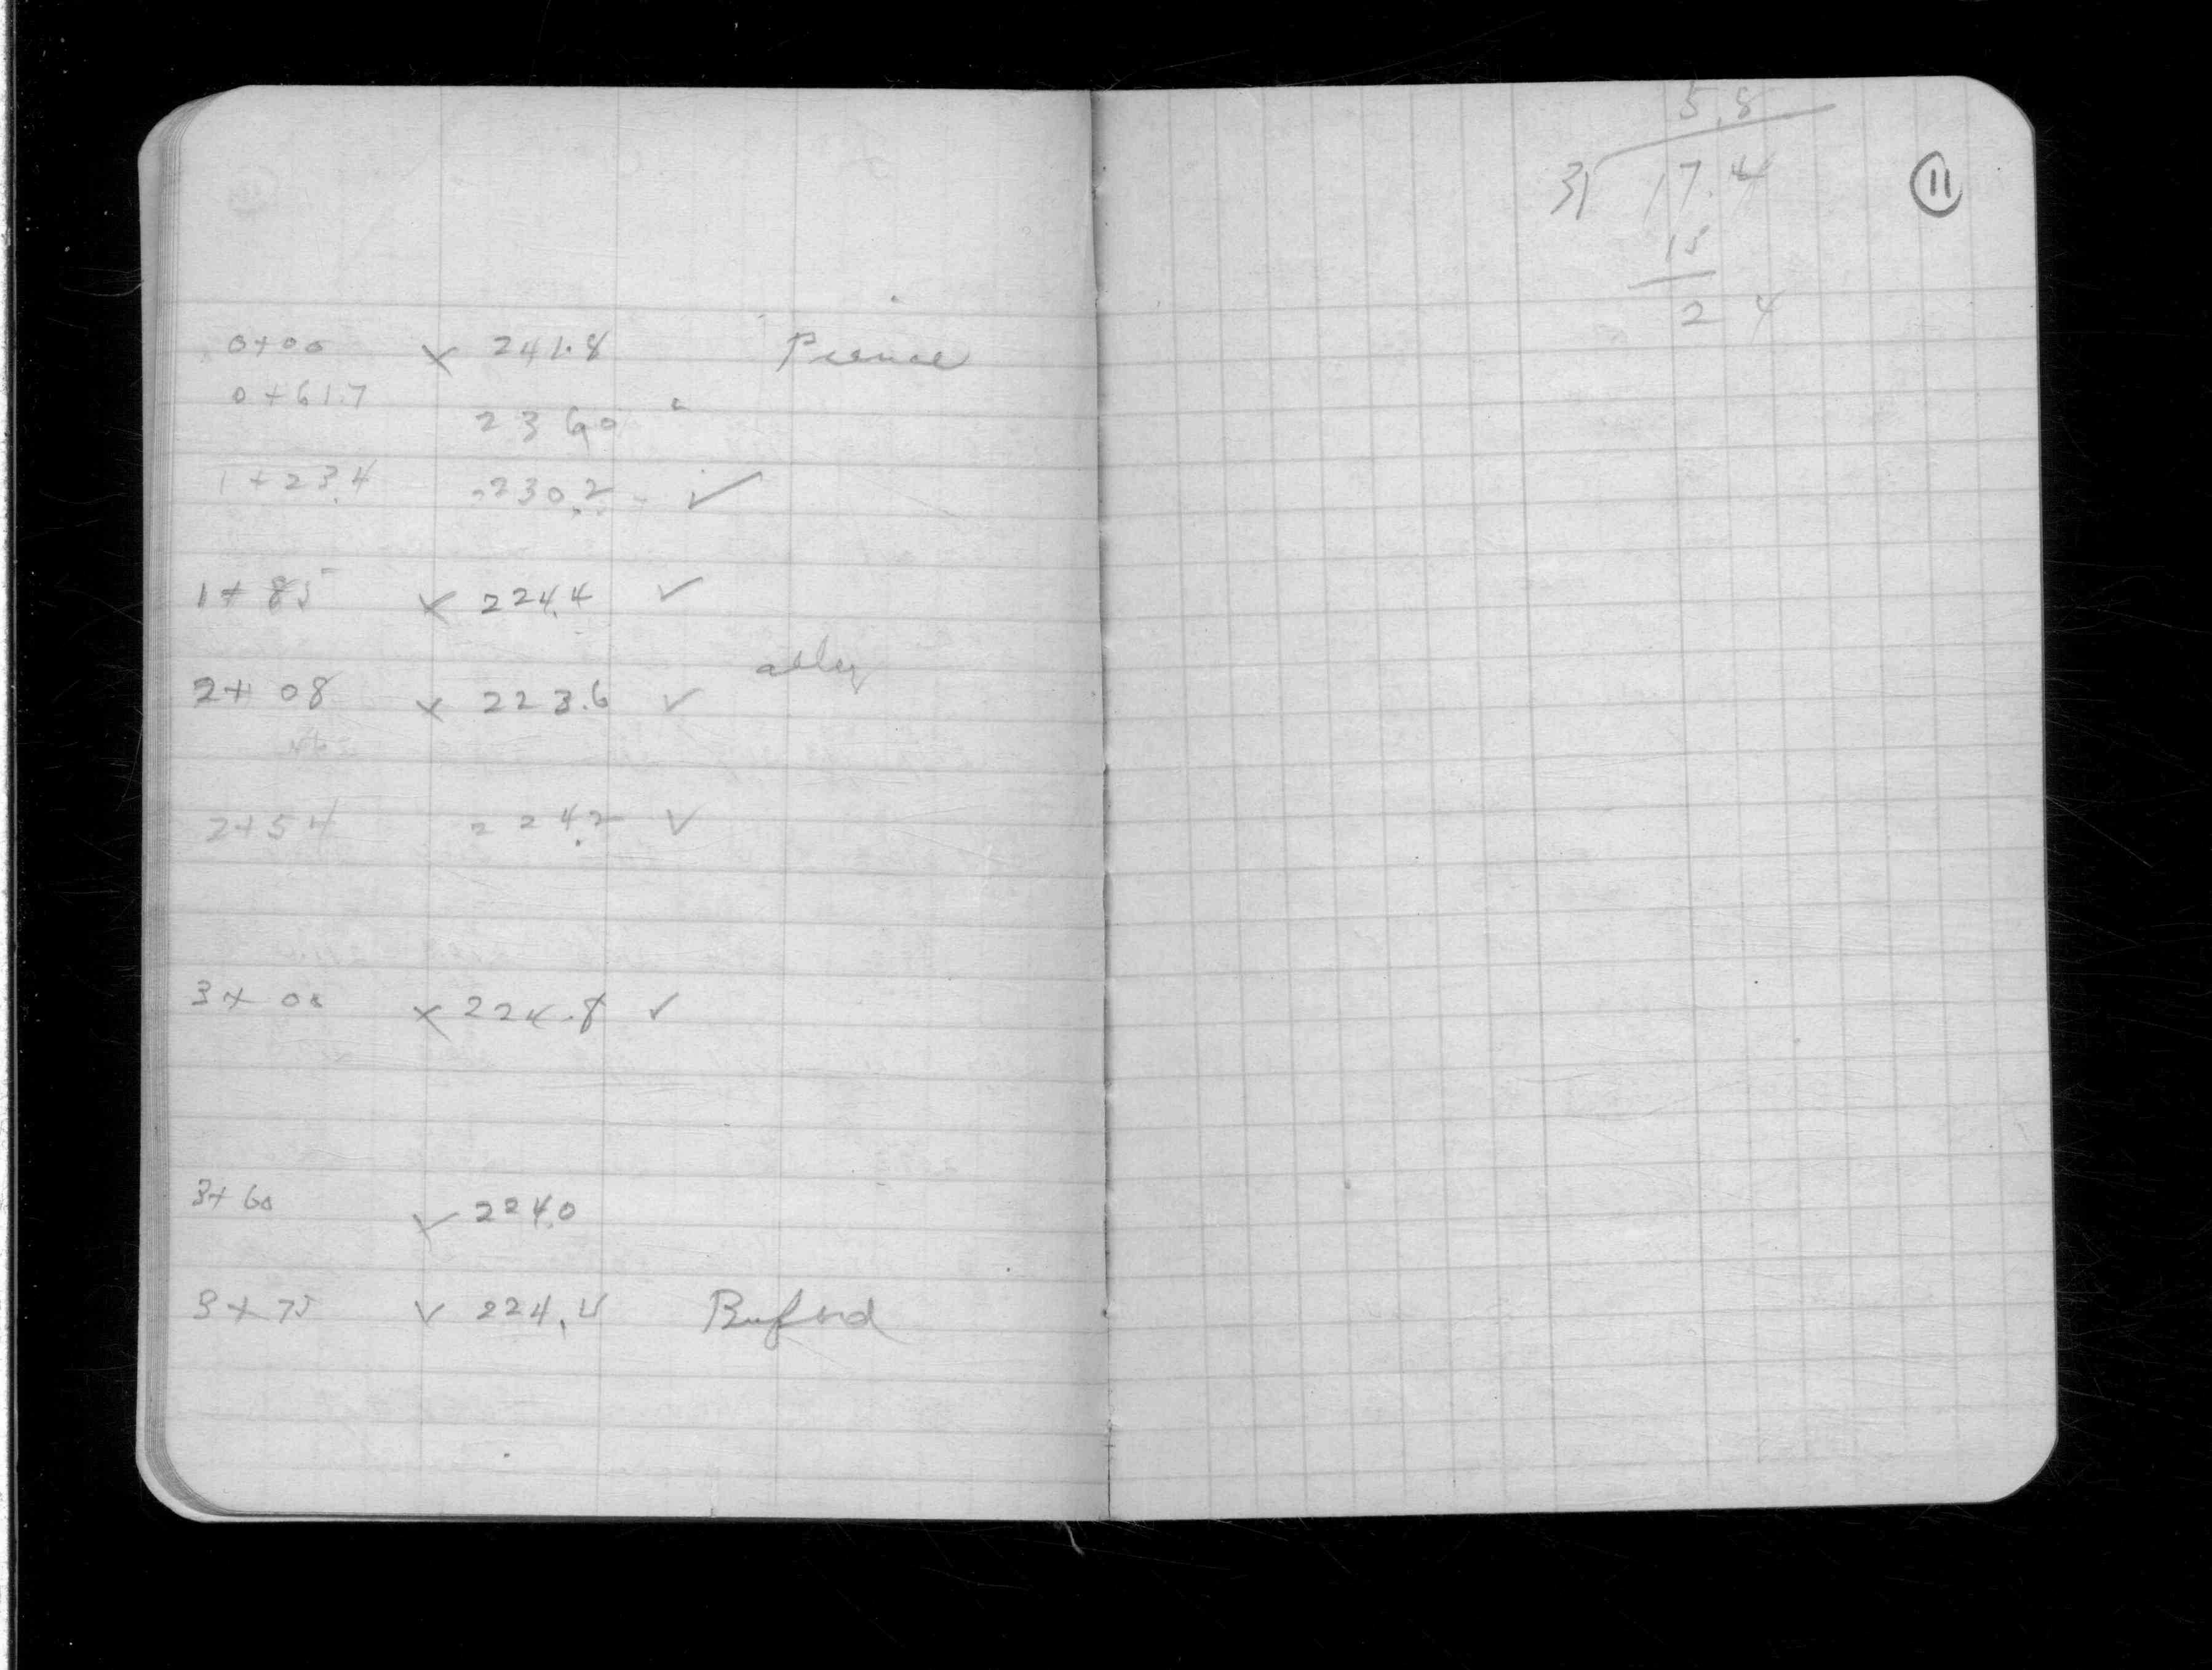 0+00 × 241.8 Pierce
0+61.7
236.0
1+23.4 230.2 - ✓
1+85 × 224.4 ✓
alley
2+08 × 223.6 ✓
2+54 224.2 ✓
3+00 × 224.8 ✓
3+60 ✓ 224.0
3+75 ✓ 224.4 Buford
5.8
3) 17.4
15
2 4
11